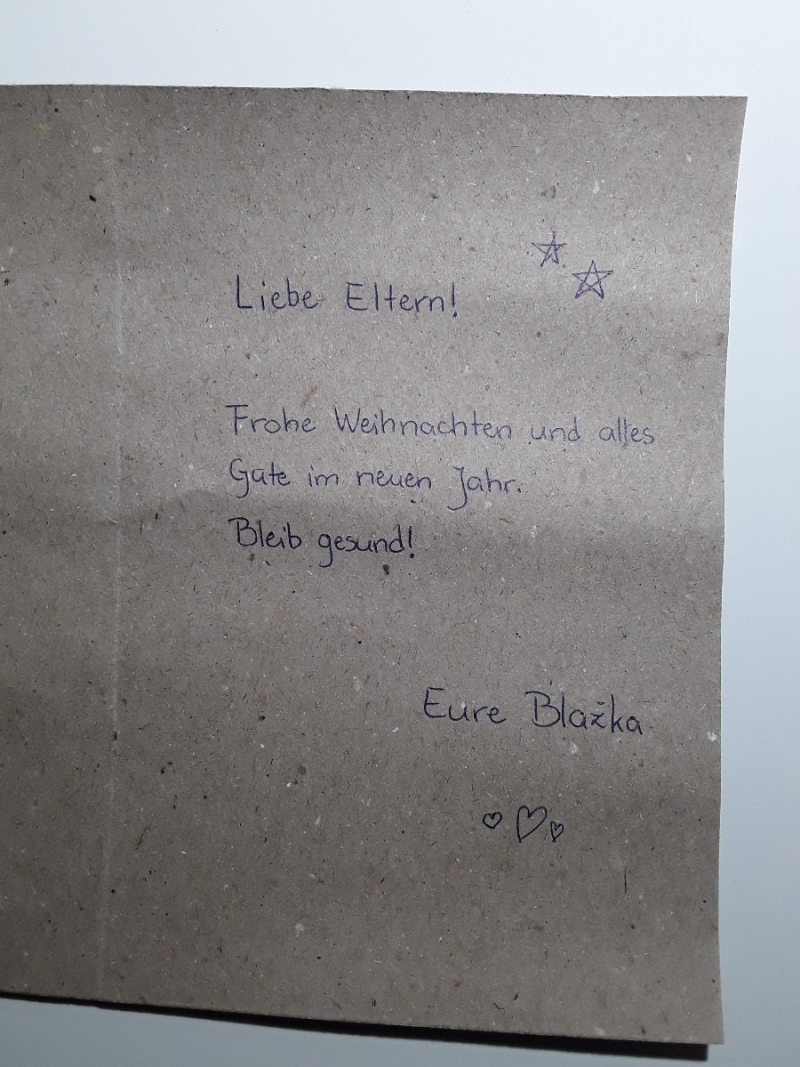 Liebe Eltern!
Frohe Weihnachten und alles
Gute im neuen Jahr.
Bleib gesund!
Eure Blažka